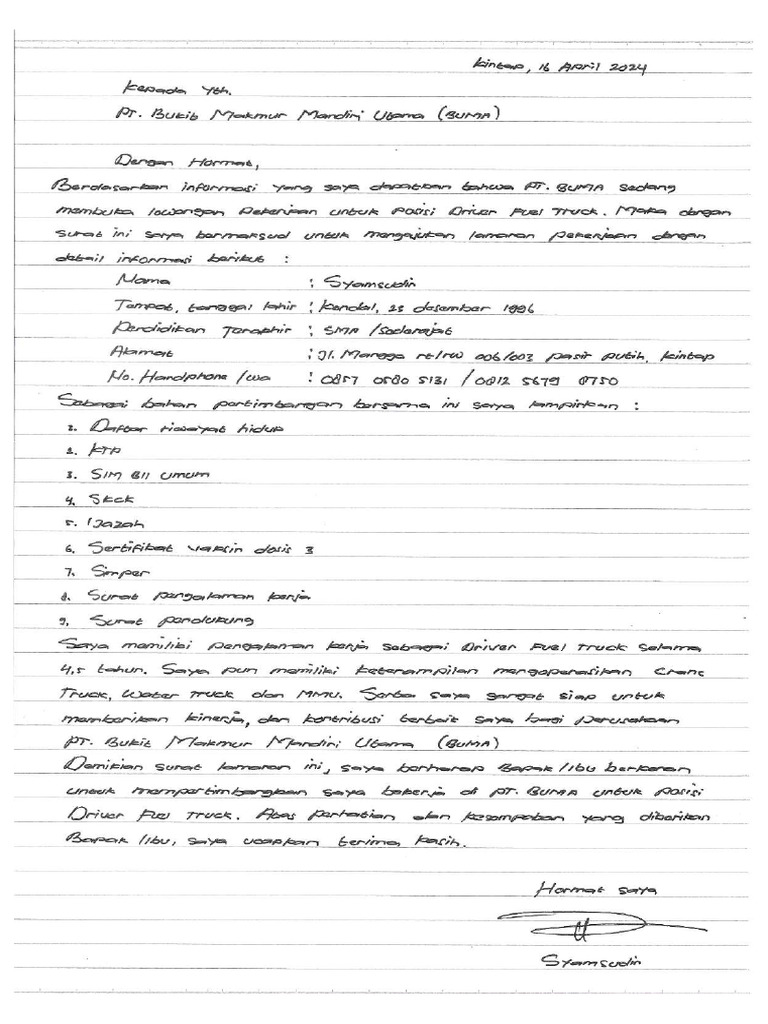 Kintap, 16 April 2024
Kepada Yth.
PT. Bukit Makmur Mandiri Utama (BUMA)
Dengan Hormat,
Berdasarkan informasi yang saya dapatkan bahwa PT. BUMA sedang
membuka lowongan Pekerjaan untuk Posisi Driver Fuel Truck. Maka dengan
surat ini saya bermaksud untuk mengajukan lamaran pekerjaan dengan
detail informasi berikut :
Nama : Syamsudin
Tempat, tanggal lahir : Kendal, 23 desember 1996
Pendidikan Terakhir : SMA / Sederajat
Alamat : Jl. Mangga rt/rw 006/003 pasir putih, kintap
No. Handphone / wa : 0857 0580 5131 / 0812 5679 8750
Sebagai bahan pertimbangan bersama ini saya lampirkan :
1. Daftar riwayat hidup
2. KTP
3. SIM BII Umum
4. Skck
5. Ijazah
6. Sertifikat vaksin dosis 3
7. Simper
8. Surat pengalaman kerja
9. Surat pendukung
Saya memiliki pengalaman kerja sebagai Driver Fuel Truck selama
4,5 tahun. Saya pun memiliki keterampilan mengoperasikan Crane
Truck, Water Truck dan MMU. Serta saya sangat siap untuk
memberikan kinerja, dan kontribusi terbaik saya bagi perusahaan
PT. Bukit Makmur Mandiri Utama (BUMA)
Demikian surat lamaran ini, saya berharap Bapak/Ibu berkenan
untuk mempertimbangkan saya bekerja di PT. BUMA untuk Posisi
Driver Fuel Truck. Atas perhatian dan kesempatan yang diberikan
Bapak / Ibu, saya ucapkan terima kasih.
Hormat saya
Syamsudin